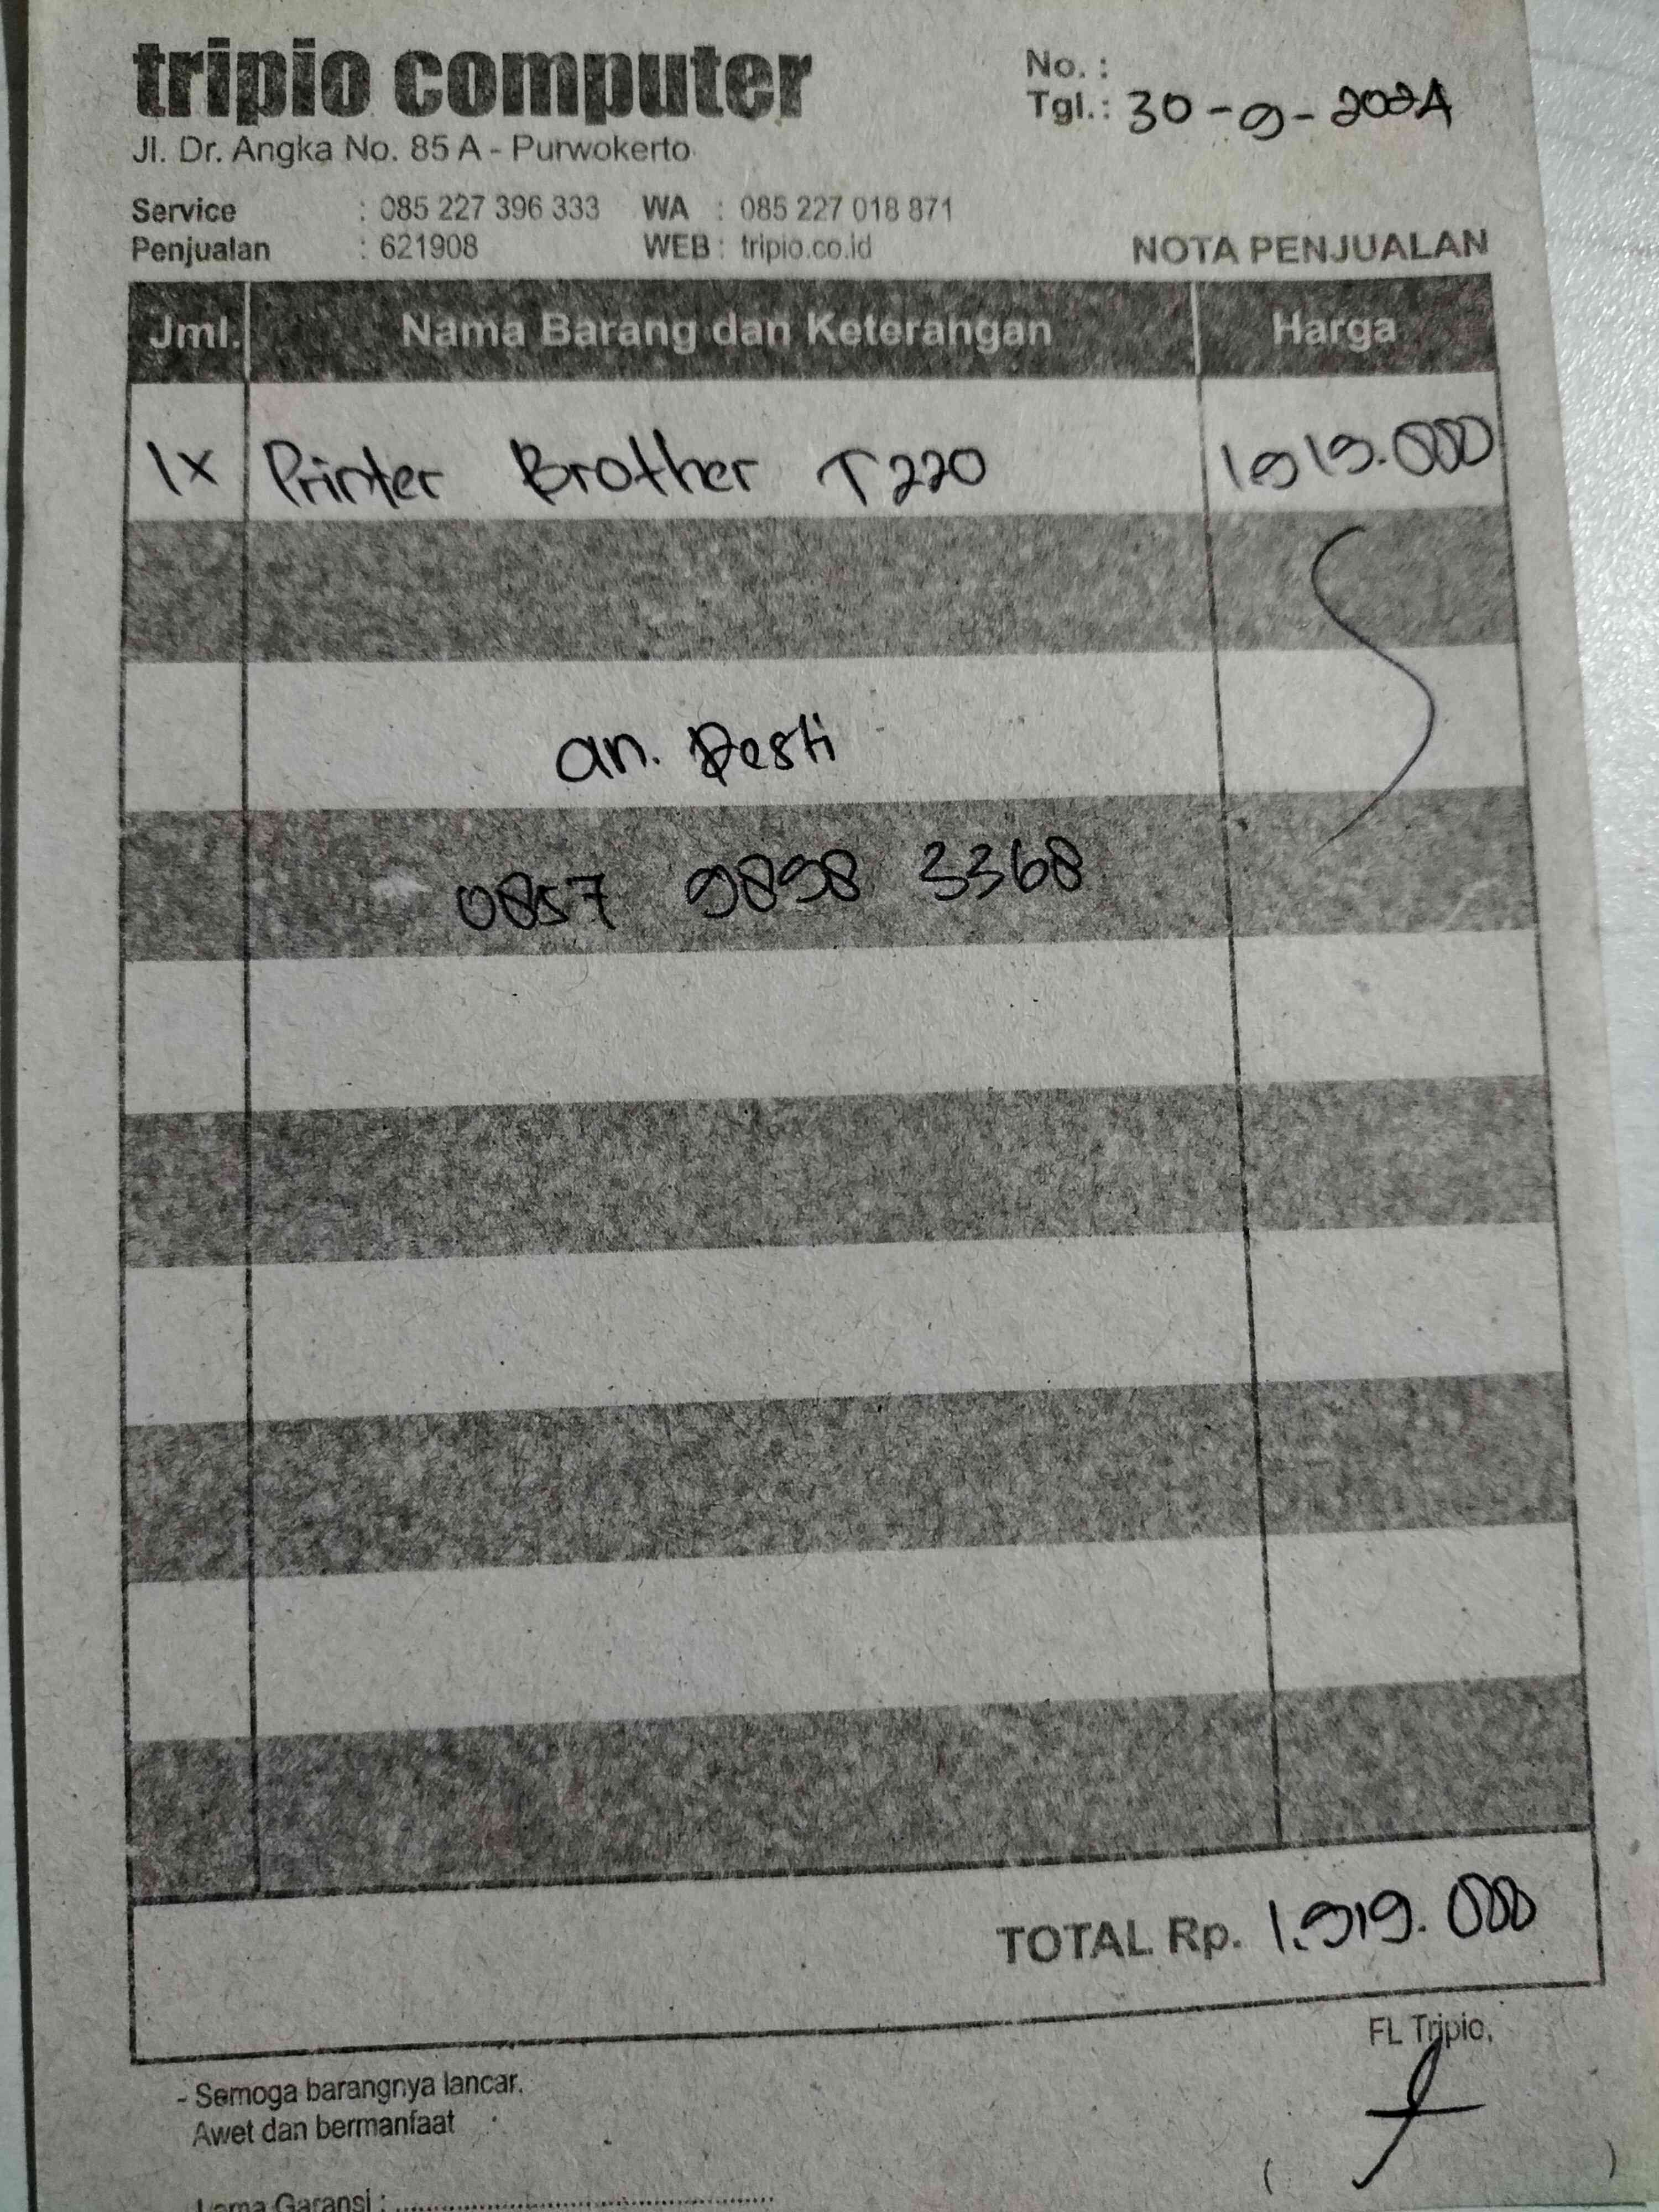 tripio computer
Jl. Dr. Angka No. 85 A - Purwokerto
No. :
Tgl. : 30 - 9 - 2024
Service : 085 227 396 333 WA : 085 227 018 871
Penjualan : 621908 WEB : tripio.co.id
NOTA PENJUALAN
Jml. Nama Barang dan Keterangan Harga
1x Printer Brother T220 1.919.000
an. Desti
0857 9898 3368
TOTAL Rp. 1.919.000
FL Tripio,
- Semoga barangnya lancar.
Awet dan bermanfaat
( )
Lama Garansi : ........................................